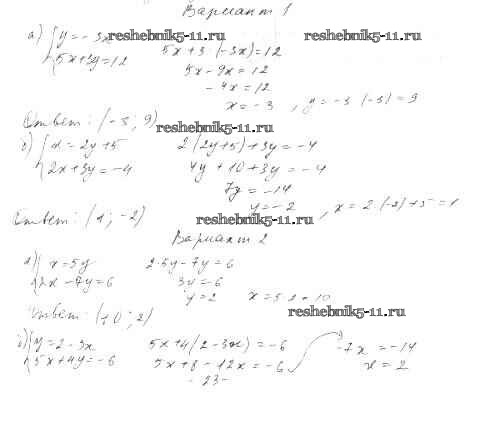 Вариант 1
а) { y = - 3x
5x+3y=12
5x+3(-3x)=12
5x-9x=12
-4x=12
x=-3, y=-3·(-3)=9
Ответ: (-3; 9)
б) { x=2y+5
2x+3y=-4
2(2y+5)+3y=-4
4y+10+3y=-4
7y=-14
y=-2, x=2·(-2)+5=1
Ответ: (1; -2)
Вариант 2
а) { x=5y
2x-7y=6
2·5y-7y=6
3y=6
y=2 x=5·2=10
Ответ: (10; 2)
б) { y=2-3x
5x+4y=-6
5x+4(2-3x)=-6
5x+8-12x=-6
-7x=-14
x=2
- 23 -
reshebnik5-11.ru
reshebnik5-11.ru
reshebnik5-11.ru
reshebnik5-11.ru
reshebnik5-11.ru